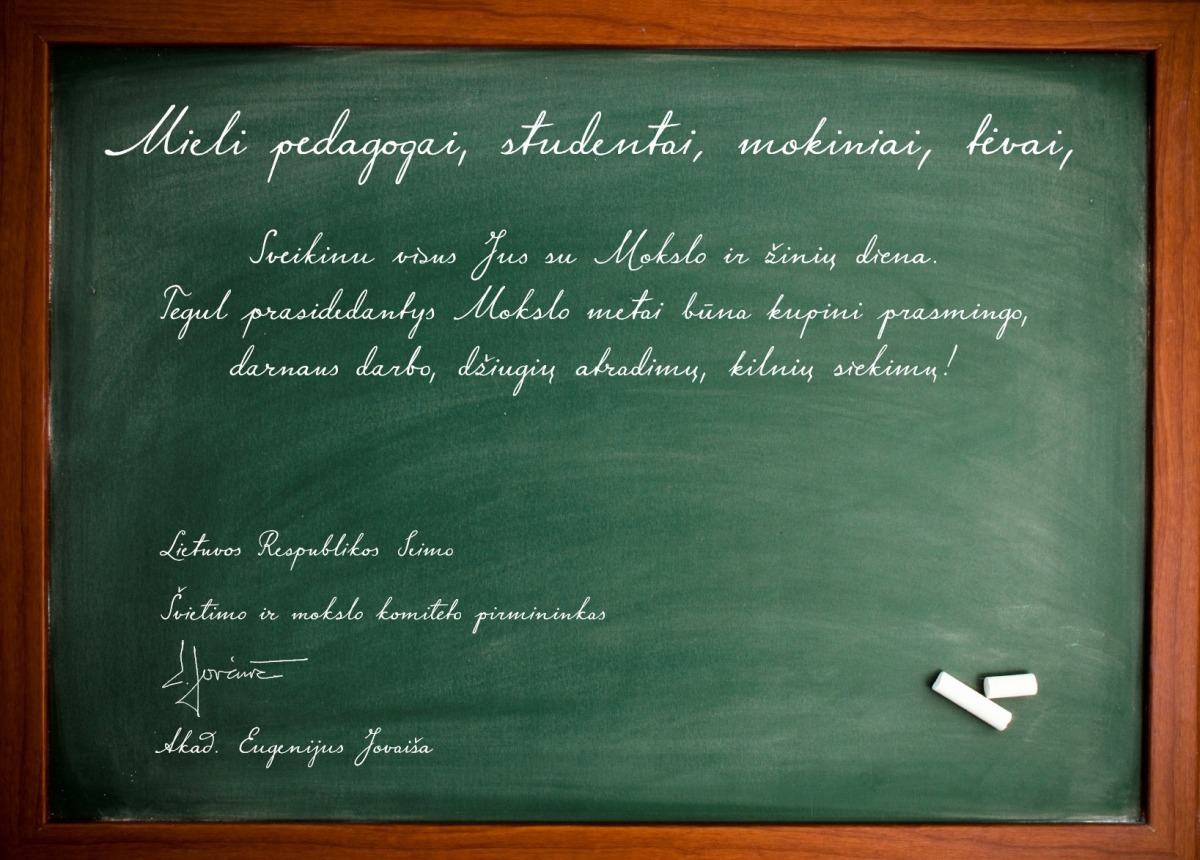 Mieli pedagogai, studentai, mokiniai, tėvai,
Sveikinu visus Jus su Mokslo ir žinių diena.
Tegul prasidedantys Mokslo metai būna kupini prasmingo,
darnaus darbo, džiugių atradimų, kilnių siekimų!
Lietuvos Respublikos Seimo
Švietimo ir mokslo komiteto pirmininkas
E. Jovaiša
Akad. Eugenijus Jovaiša